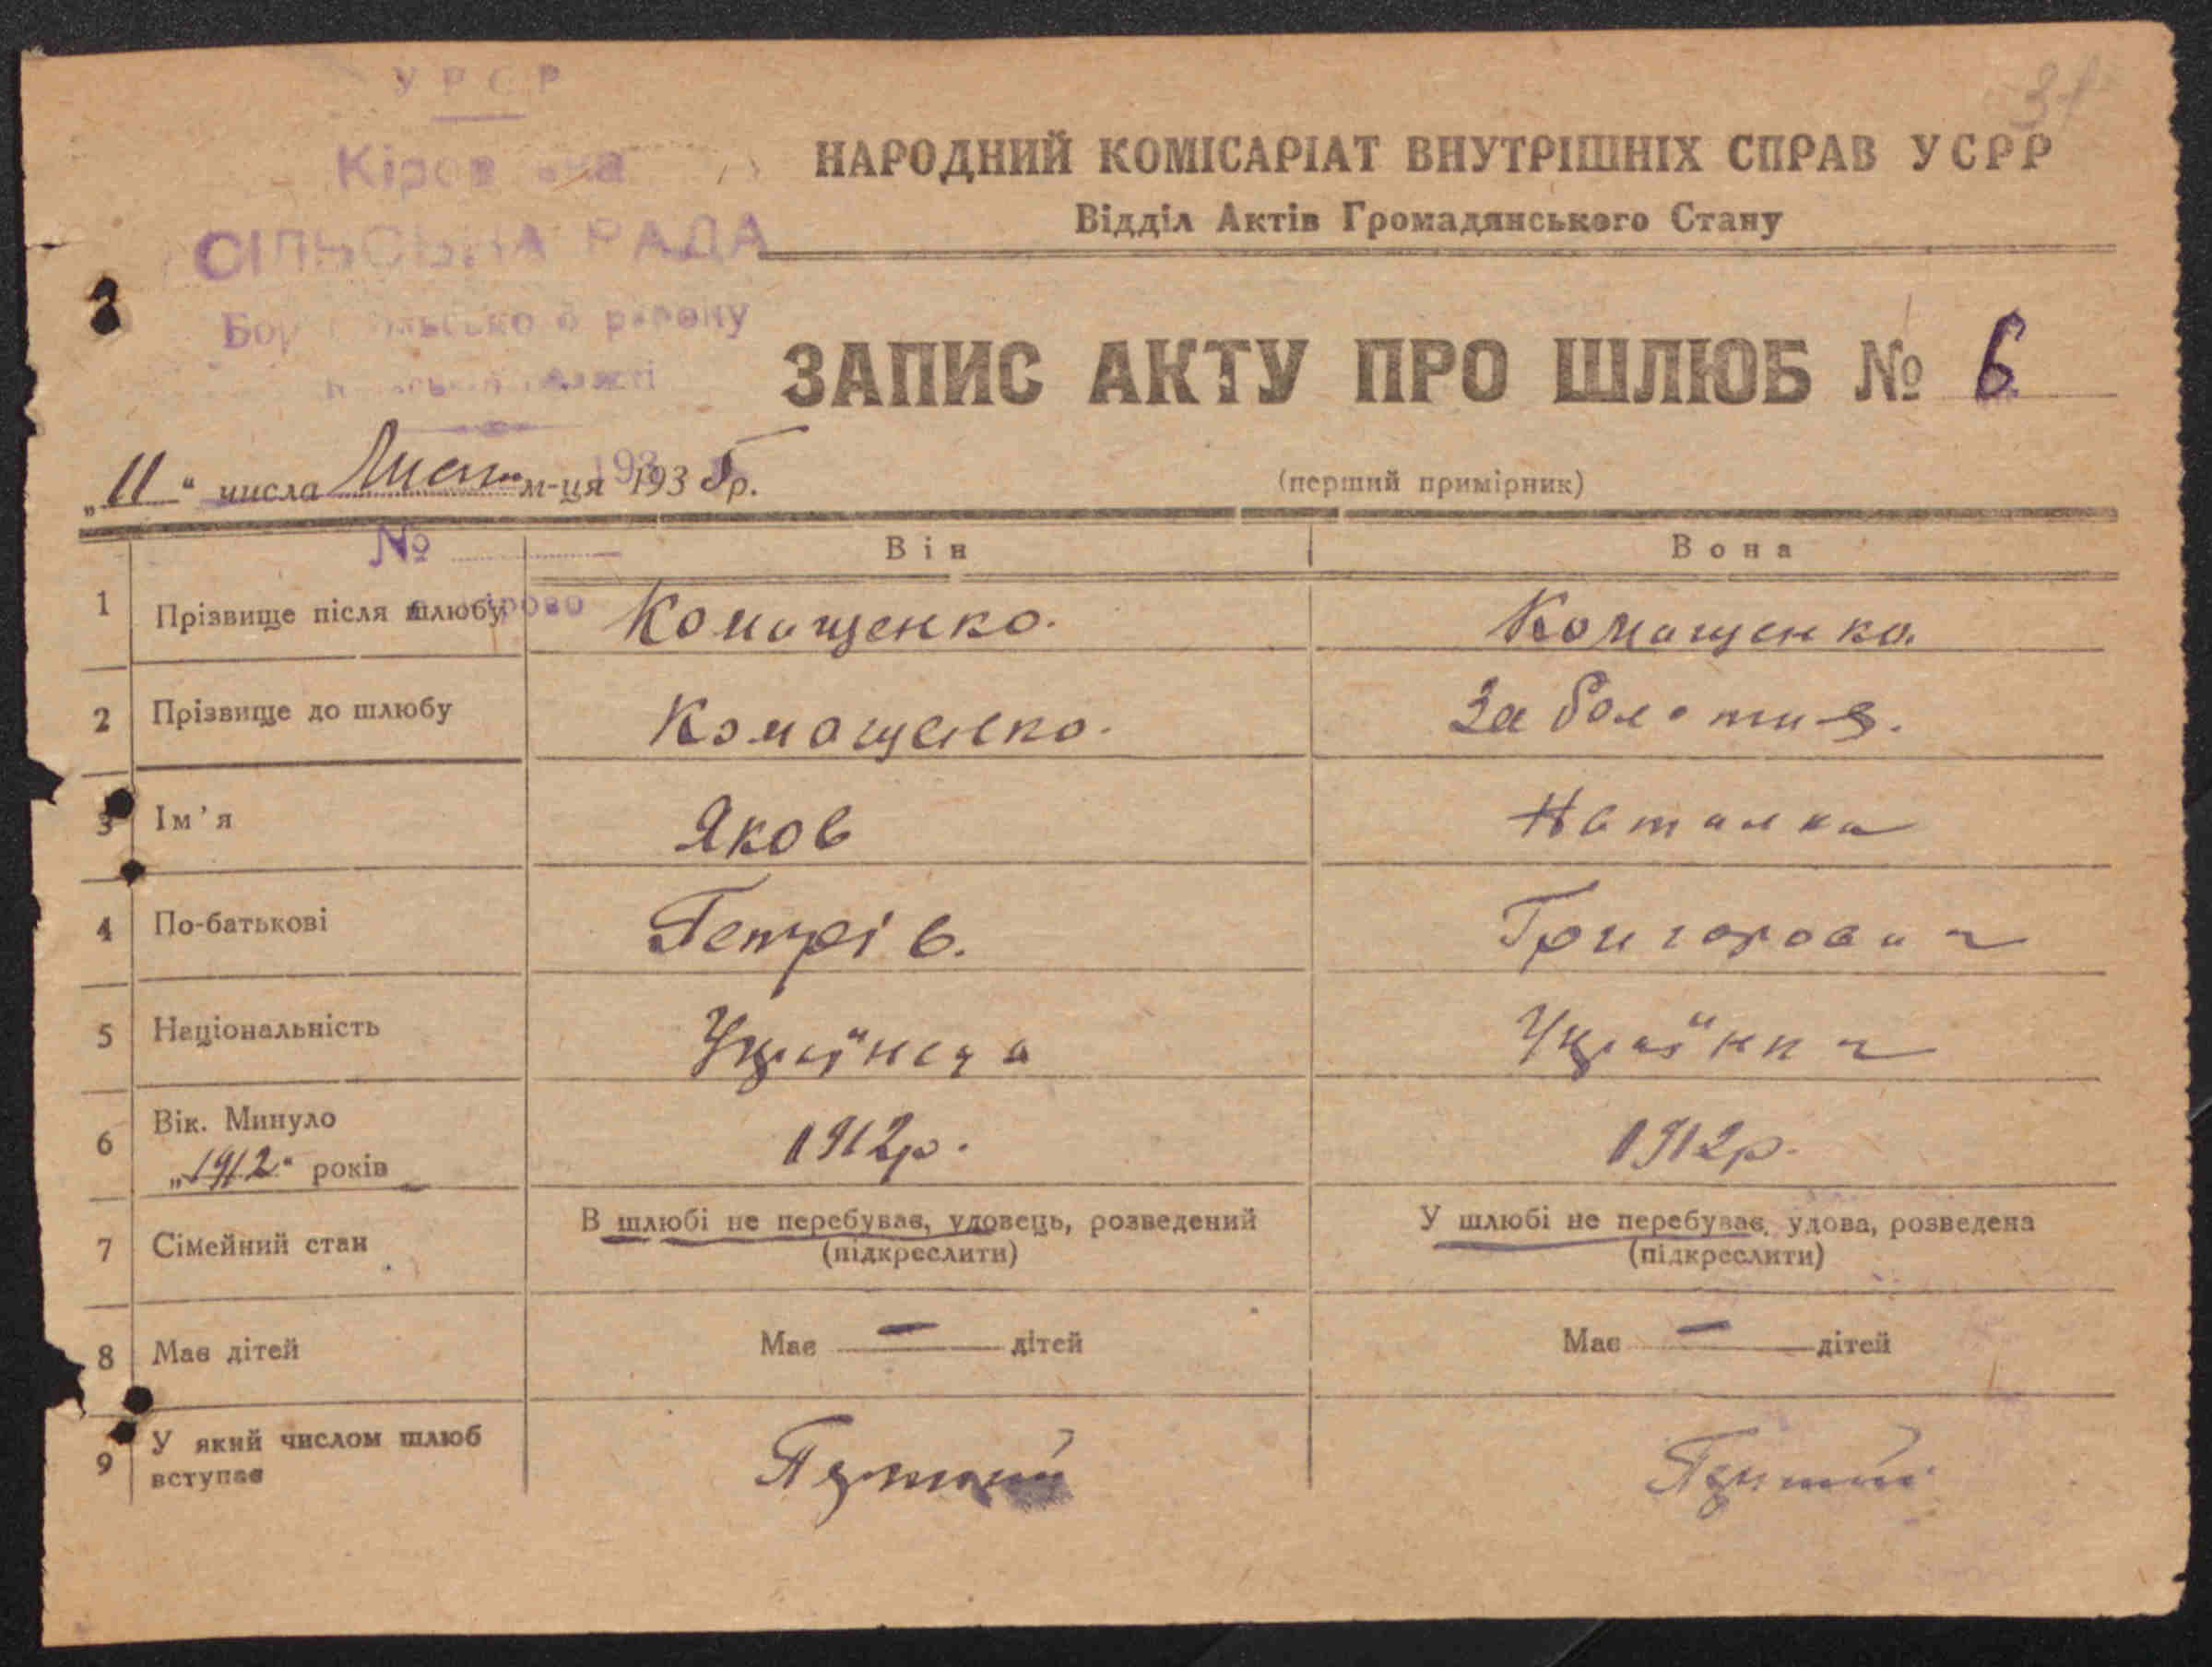 УРСР
СІЛЬСЬКА РАДА
31
НАРОДНИЙ КОМІСАРІАТ ВНУТРІШНІХ СПРАВ УСРР
Відділ Актів Громадянського Стану
ЗАПИС АКТУ ПРО ШЛЮБ № 6
„11“ числа Лист м-ця 1935р.
(перший примірник)
№
Він Вона
1 Прізвище після шлюбу Комащенко. Комащенко.
2 Прізвище до шлюбу Комащенко. Заболотня.
3 Ім'я Яков Наталка
4 По-батькові Петрів. Григоровна
5 Національність Українец Українка
6 Вік. Минуло „1912“ років 1912р. 1912р.
7 Сімейний стан В шлюбі не перебував, удовець, розведений У шлюбі не перебував, удова, розведена
(підкреслити) (підкреслити)
8 Має дітей Має — дітей Має — дітей
9 У який числом шлюб
вступає